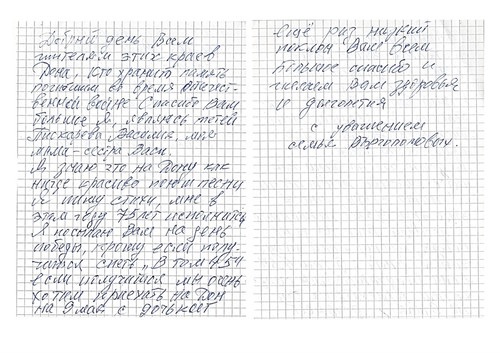 Добрый день Вам
жителям этих краев
Дона, кто хранит память
погибшим во время отечест-
венной войне Спасибо Вам
большое Я, являюсь тётей
Пискарева Василия, моя
мама - сестра Васи.
Я знаю что на Дону как
нигде красиво поют песни
Я пишу стихи, мне в
этом году 75 лет исполнитс
Я посылаю Вам на день
победы, прошу если полу-
читься спеть „В том 45м
если получится мы очень
хотим приехать на Дон
на 9 мая с дочькой
ещё раз низкий
поклон Вам всем
большое спасибо и
желаем Вам здоровья
и долголетия
с уважением
семья